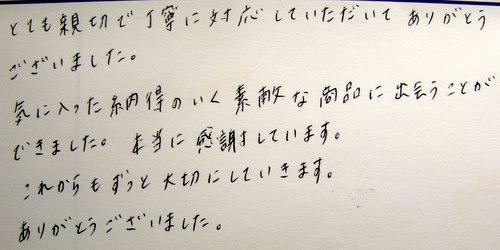 とても親切で丁寧に対応していただいてありがとう
ございました。
気に入った納得のいく素敵な商品に出会うことが
できました。本当に感謝しています。
これからもずっと大切にしていきます。
ありがとうございました。